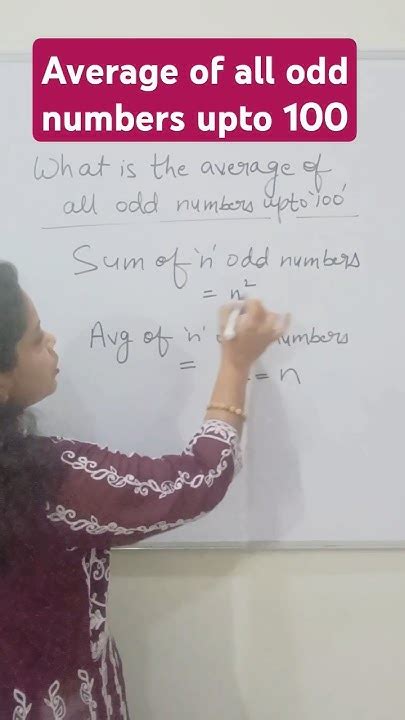 Average of all odd
numbers upto 100
What is the average of
all odd numbers upto '100'
Sum of 'n' odd numbers
= n²
Avg of 'n' numbers
= = n